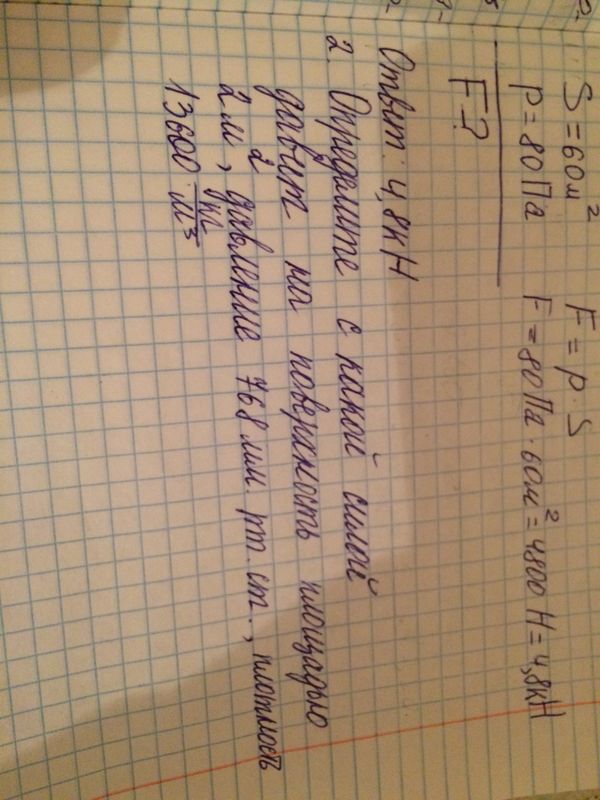 S = 60м² F = p · S
p = 80 Па F = 80 Па · 60м² = 4800 Н = 4,8кН
F - ?
Ответ: 4,8кН
2. Определите с какой силой
давит на поверхность площадью
2м², давление 768 мм. рт. ст., плотность
13600 кг/м³